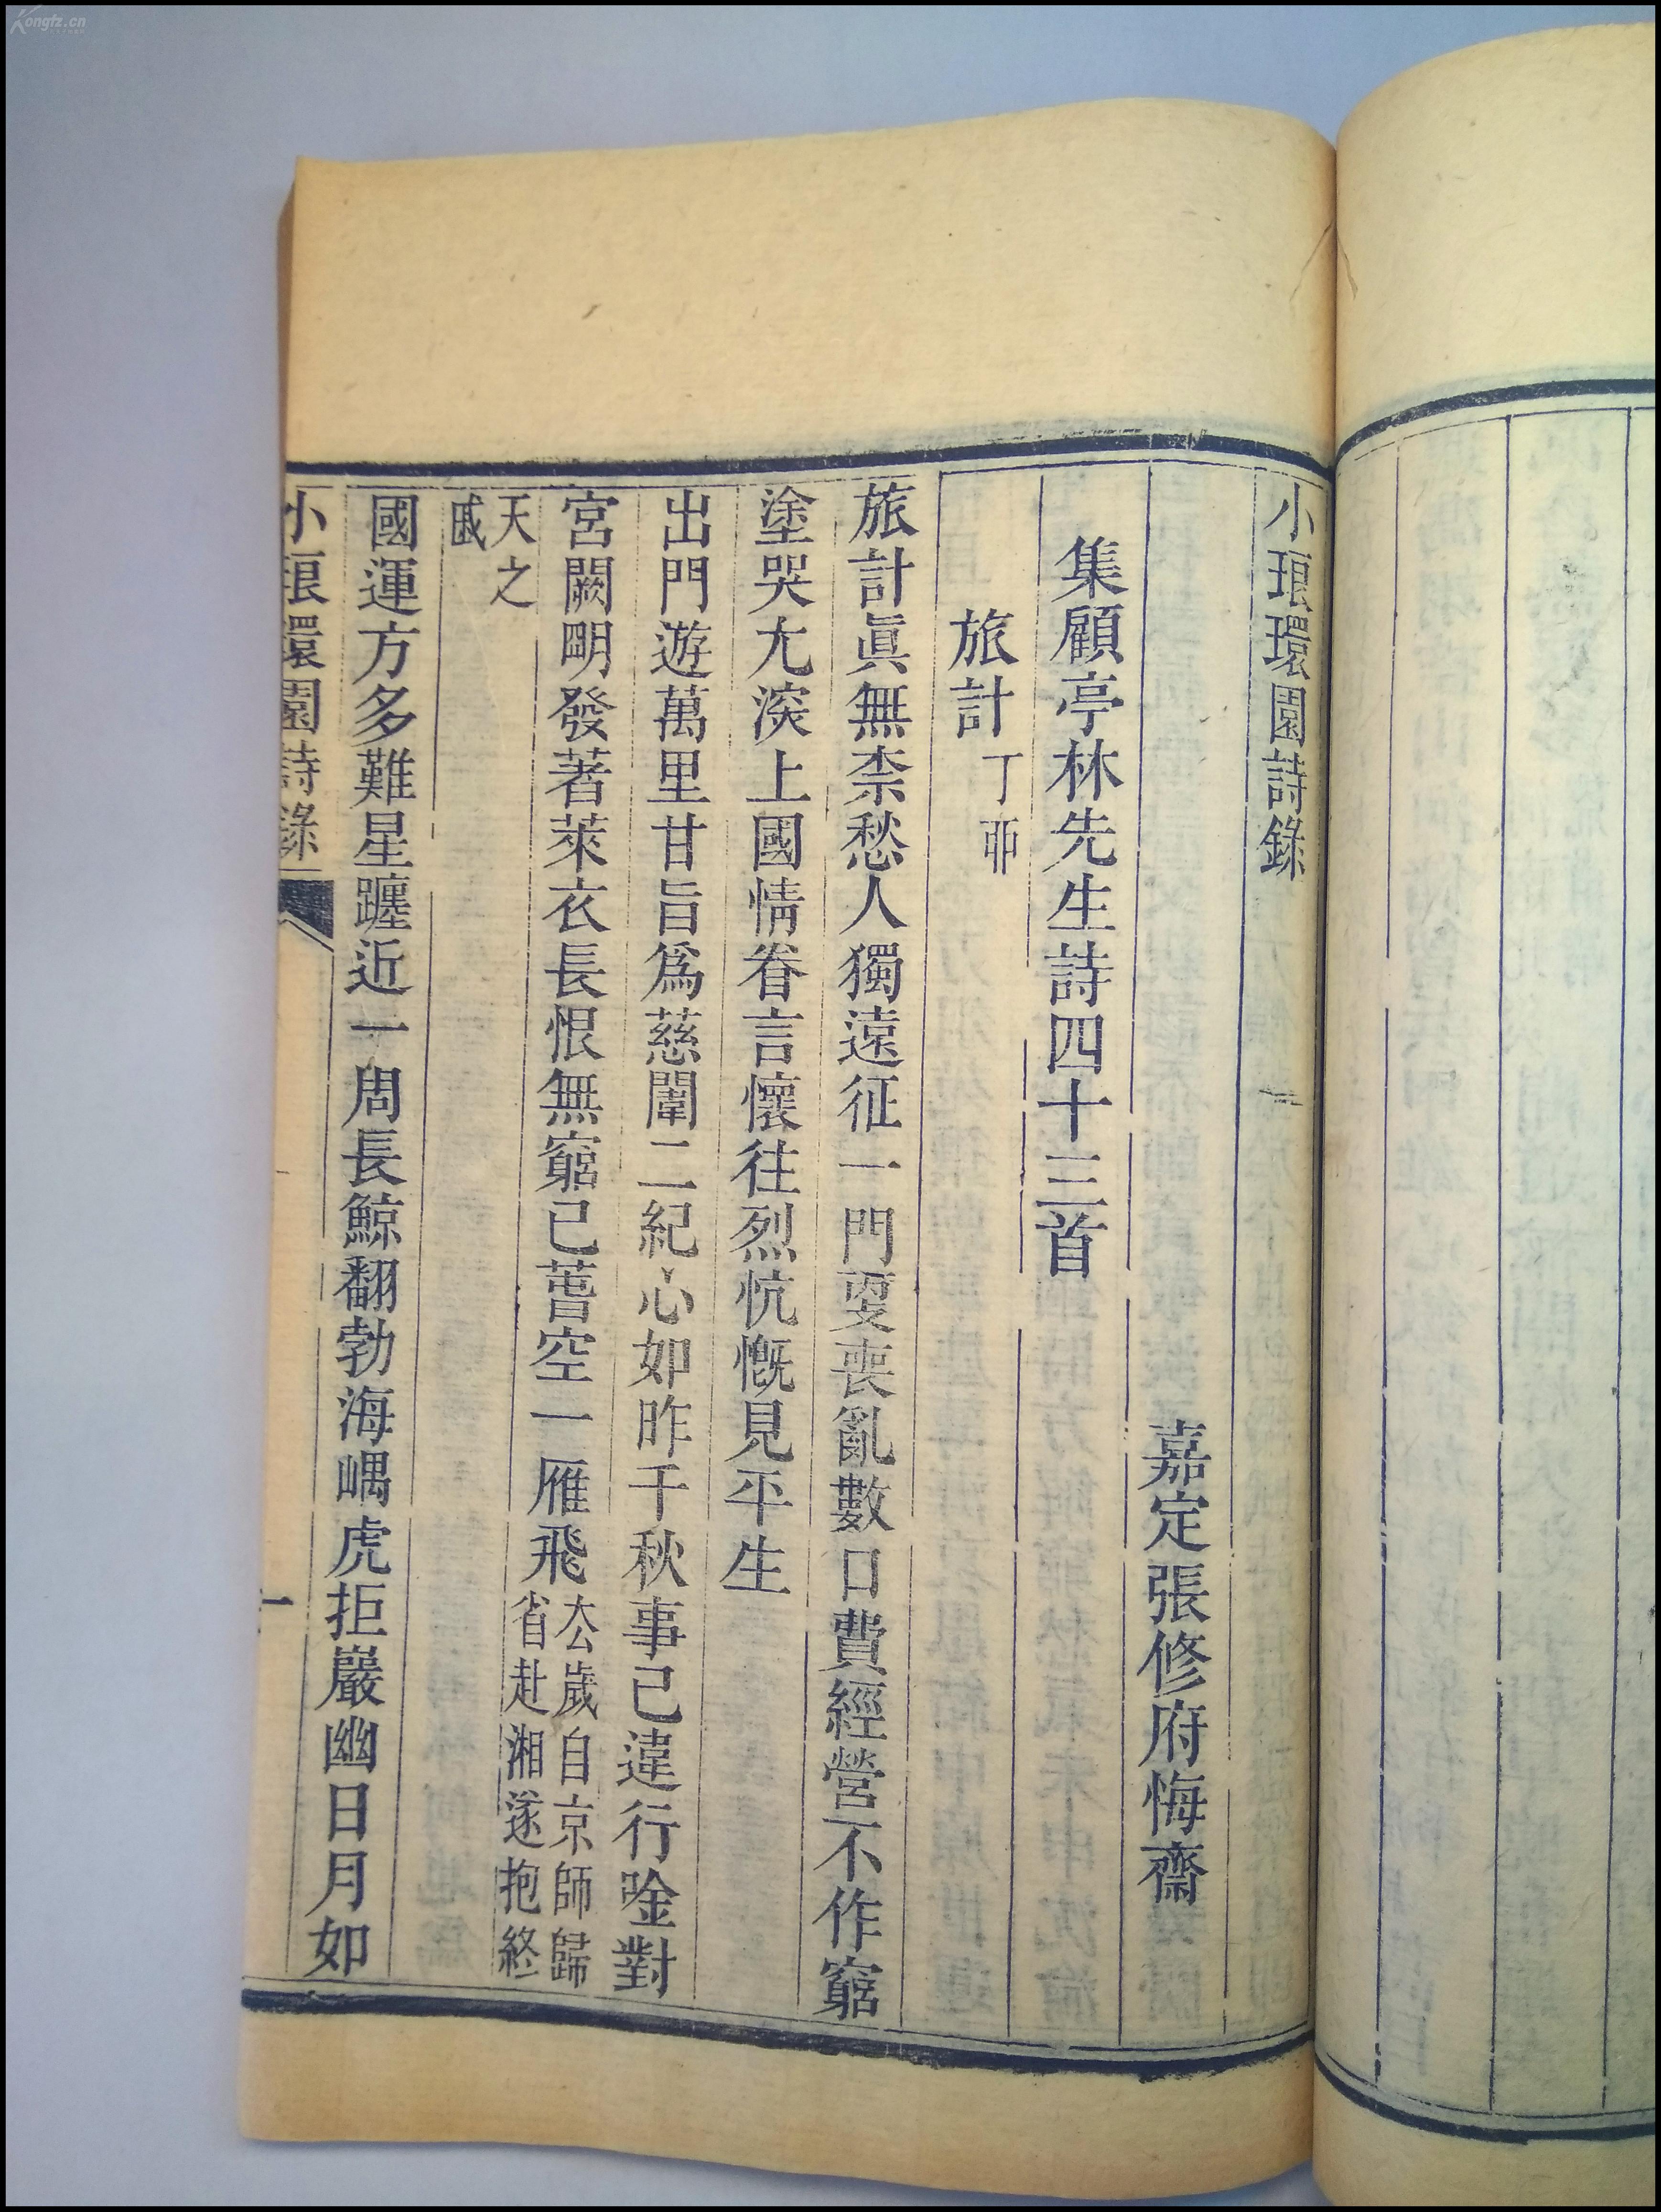 小琅環園詩錄
嘉定張修府悔齋
集顧亭林先生詩四十三首
旅計丁丣
旅計眞無柰愁人獨遠征一門更喪亂數口費經營不作窮
塗哭尢湥上國情眷言懷往烈忼慨見平生
出門遊萬里甘旨爲慈闈二紀心如昨千秋事已違行唫對
宮闕朙發著萊衣長恨無窮已菩空一雁飛厺歲自京師歸
省赴湘遂抱終
天之
戚
國運方多難星躔近一周長鯨翻勃海嵎虎拒巖幽日月如
小琅環園詩錄
一
Kongfz.cn